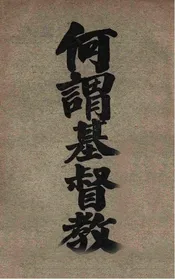 何謂基督教